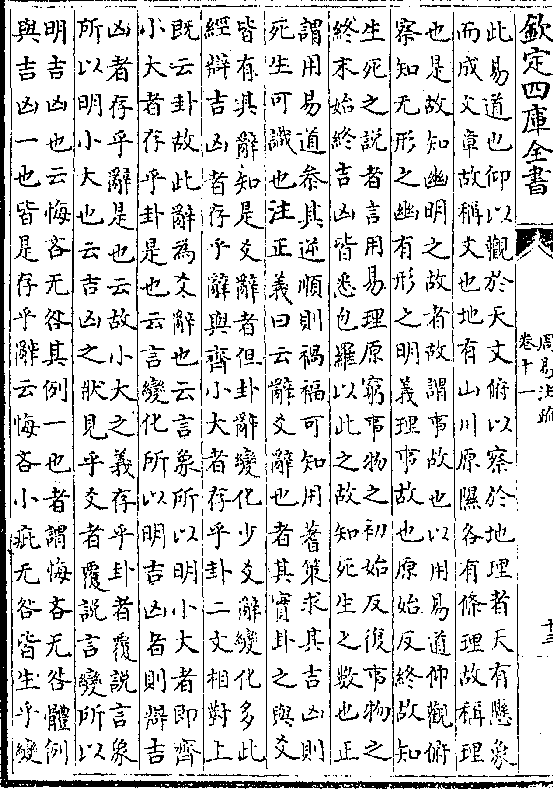 欽定四庫全書
周易注疏
卷十一
十三
此易道也仰以觀於天文俯以察於地理者天有懸象
而成文章故稱文也地有山川原隰各有條理故稱理
也是故知幽明之故者故謂事故也以用易道仰觀俯
察知无形之幽有形之明義理事故也原始反終故知
生死之說者言用易理原窮事物之初始反復事物之
終末始終吉凶皆悉包羅以此之故知死生之數也正
謂用易道參其逆順則禍福可知用蓍策求其吉凶則
死生可識也注正義曰云辭爻辭也者其實卦之與爻
皆有其辭知是爻辭者但卦辭變化少爻辭變化多此
經辯吉凶者存乎辭與齊小大者存乎卦二文相對上
既云卦故此辭為爻辭也云言象所以明小大者即齊
小大者存乎卦是也云言變化所以明吉凶者則辯吉
凶者存乎辭是也云故小大之義存乎卦者覆說言象
所以明小大也云吉凶之狀見乎爻者覆說言變所以
明吉凶也云悔吝无咎其例一也者謂悔吝无咎體例
與吉凶一也皆是存乎辭云悔吝小疵无咎皆生乎變